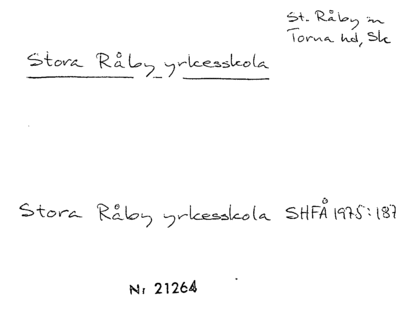 St. Råby sn
Torna hd, Sk
Stora Råby yrkesskola
Stora Råby yrkesskola SHFÅ 1975:187
Nr 21264